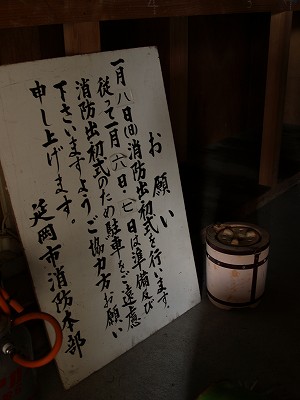 お願い
一月八日(日)消防出初式を行います。
従って一月六日・七日は準備及び
消防出初式のため駐車をご遠慮
下さいますようご協力方お願い
申し上げます。
延岡市消防本部